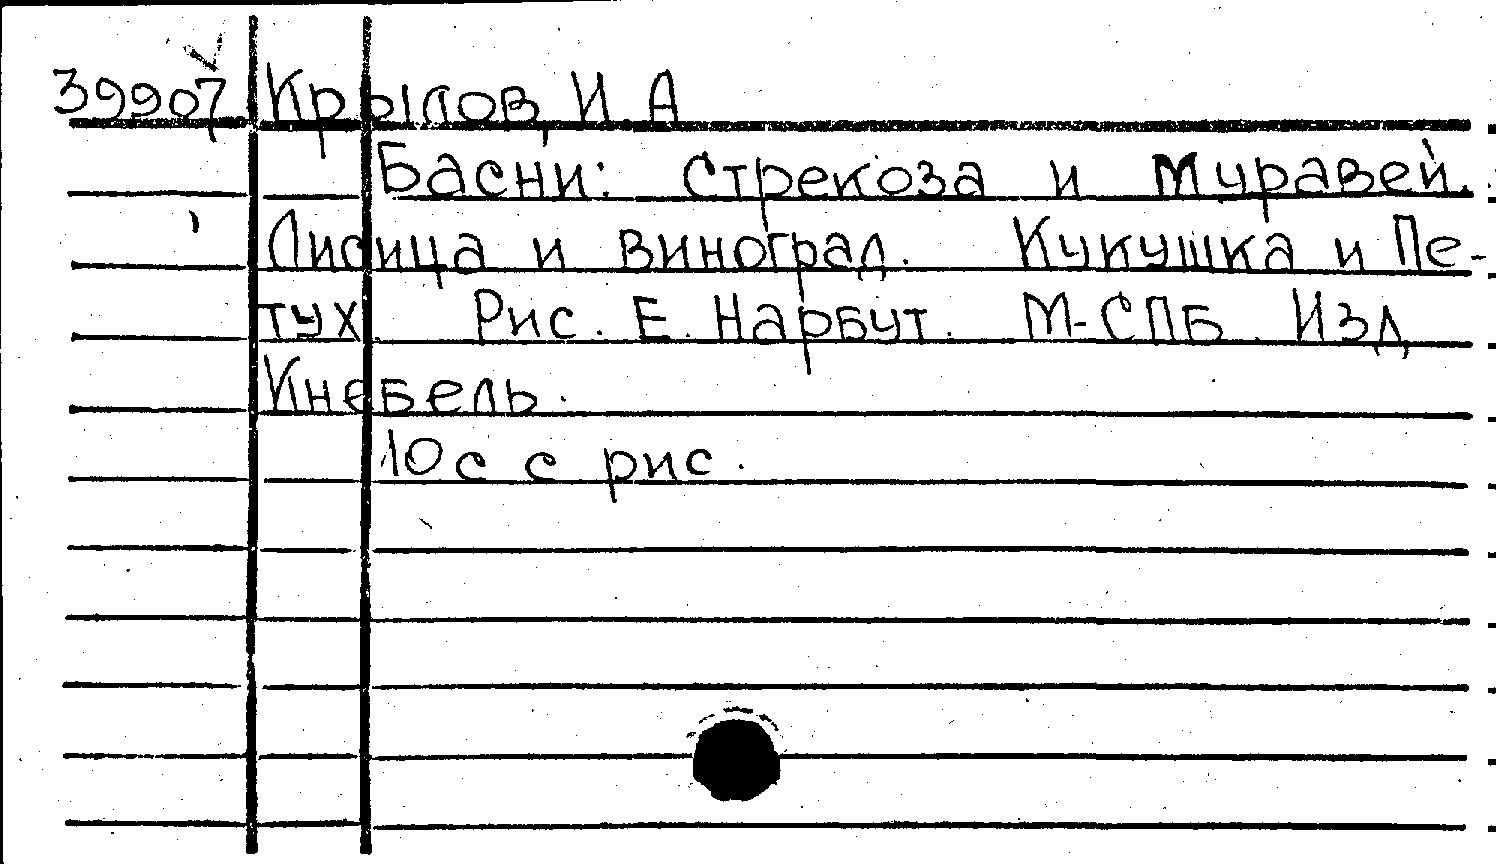 39907 Крылов, И А
Басни: Стрекоза и Муравей.
Лисица и виноград. Кукушка и Пе-
тух Рис. Е. Нарбут. М-СПБ. Изд
Кнебель.
10 с с рис.